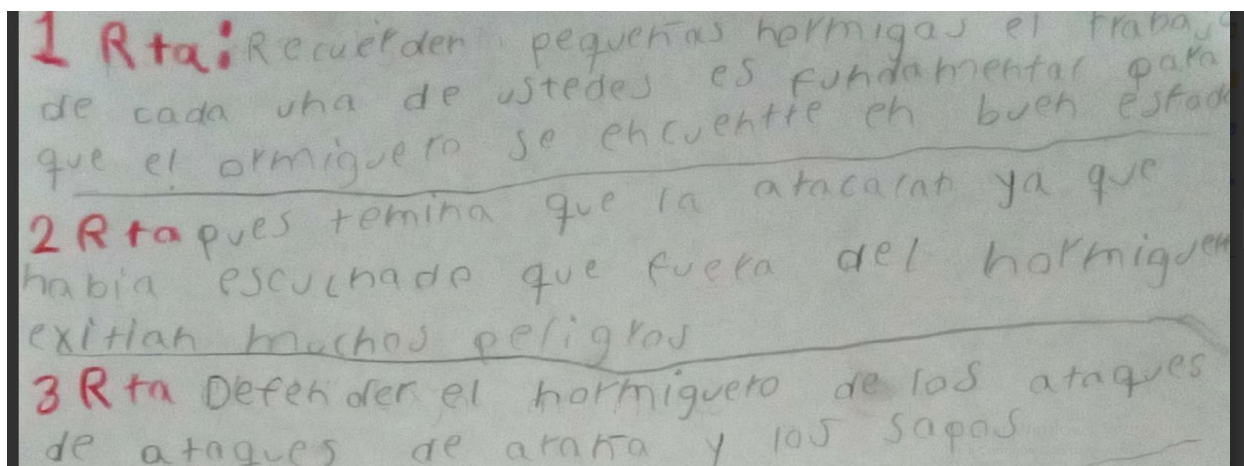 1 Rta: Recuerden pequeñas hormigas el trabaj
de cada una de ustedes es fundamental para
que el ormiguero se encuentre en buen estad
2 Rta pues temina que la atacaran ya que
habia escuchado que fuera del hormiguer
exitian muchos peligros
3 Rta Defender el hormiguero de los ataques
de ataques de araña y los sapos